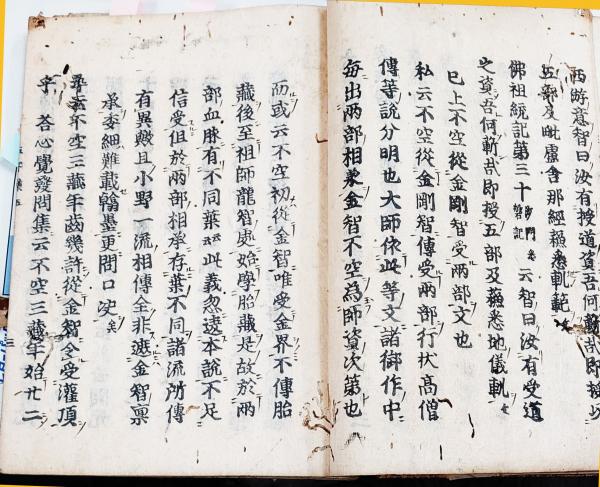 西游意智曰汝有授道資吾何斳哉即授以
五部及毗盧舍那經蘓悉軌範
佛祖統記第三十 云智曰汝有受道
之資吾何斳哉即授五部及蘓悉地儀軌
已上不空從金剛智受兩部文也
私云不空從金剛智傳受兩部行狀高僧
傳等說分明也大師依此等文諸御作中
每出兩部相承金智不空為師資次第也
而或云不空初從金智唯受金界不傳胎
藏後至祖師龍智處始學胎藏是故於兩
部血脉有不同葉云云此義忽違本說不足
信受但於兩部相承存葉不同諸流所傳
有異歟且小野一流相傳全非遮金智稟
承委細難載翰墨更問口决矣
尋云不空三藏年齒幾許從金智令受灌頂
乎 荅心覺發問集云不空三藏年始廿二